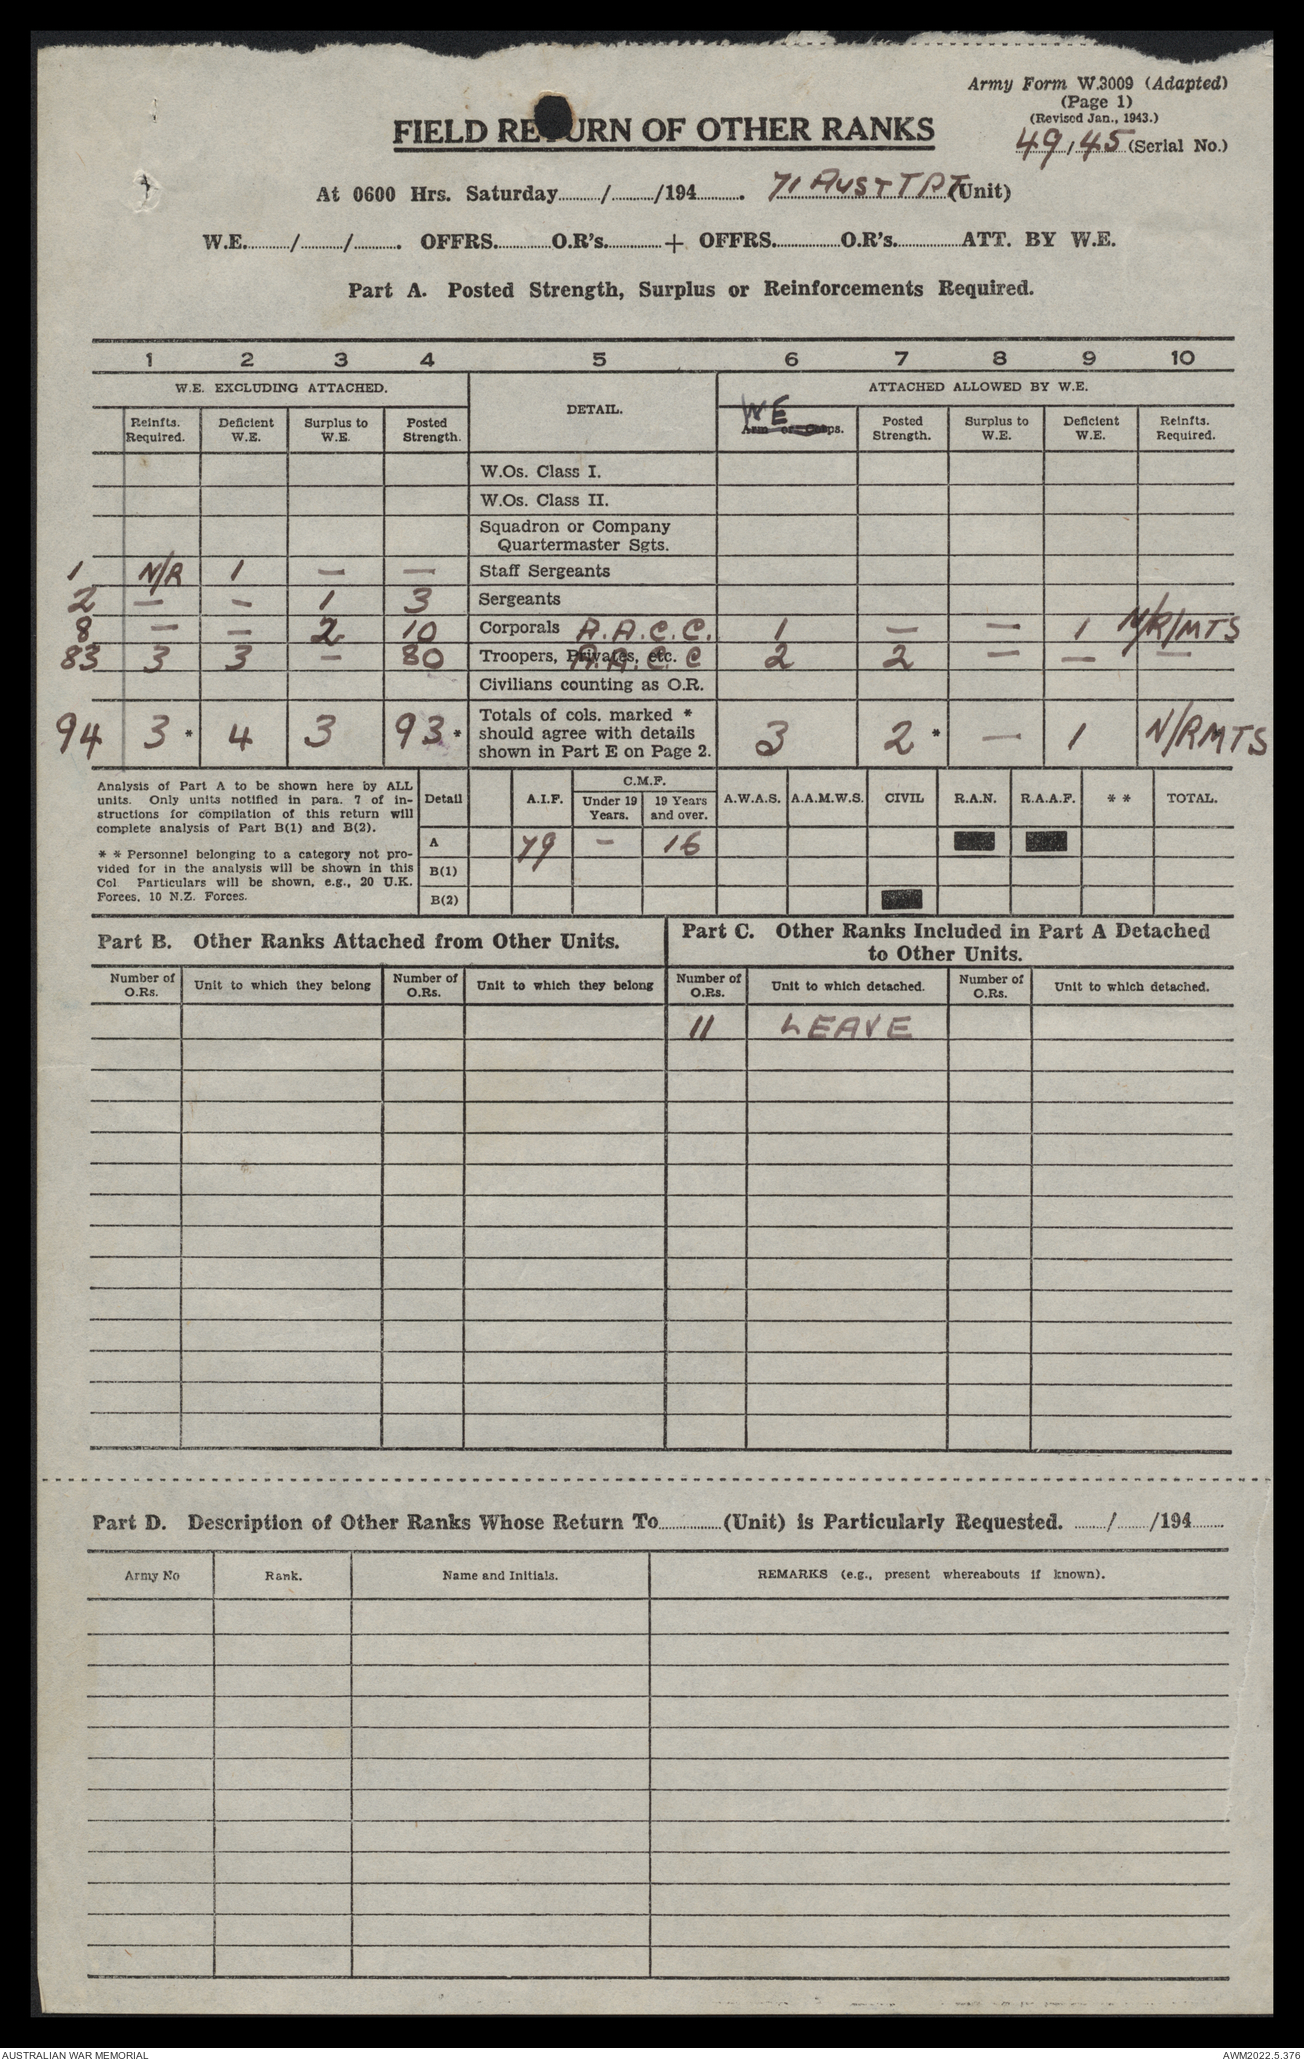 Army Form W.3009 (Adapted)
(Page 1)
(Revised Jan., 1943.)
49/45 (Serial No.)
FIELD RETURN OF OTHER RANKS
At 0600 Hrs. Saturday......../......../194......... 71 AUST TPT (Unit)
W.E........../........./.......... OFFRS............O.R's............ + OFFRS.............O.R's.............ATT. BY W.E.
Part A. Posted Strength, Surplus or Reinforcements Required.
1 2 3 4 5 6 7 8 9 10
W.E. EXCLUDING ATTACHED. DETAIL. ATTACHED ALLOWED BY W.E.
WE
Reinfts. Required. Deficient W.E. Surplus to W.E. Posted Strength. Arm or Corps. Posted Strength. Surplus to W.E. Deficient W.E. Reinfts. Required.
W.Os. Class I.
W.Os. Class II.
Squadron or Company
Quartermaster Sgts.
1 N/R 1 — — Staff Sergeants
2 — — 1 3 Sergeants
8 — — 2 10 Corporals A.A.C.C. 1 — — 1 N/R/MTS
83 3 3 — 80 Troopers, Privates, etc. A.A.C.C 2 2 — — —
Civilians counting as O.R.
94 3 * 4 3 93 * Totals of cols. marked * should agree with details shown in Part E on Page 2. 3 2 * — 1 N/RMTS
Analysis of Part A to be shown here by ALL
units. Only units notified in para. 7 of in-
structions for compilation of this return will
complete analysis of Part B(1) and B(2).
* * Personnel belonging to a category not pro-
vided for in the analysis will be shown in this
Col Particulars will be shown, e.g., 20 U.K.
Forces, 10 N.Z. Forces.
C.M.F.
Detail A.I.F. Under 19 Years. 19 Years and over. A.W.A.S. A.A.M.W.S. CIVIL R.A.N. R.A.A.F. * * TOTAL.
A 79 — 16
B(1)
B(2)
Part B. Other Ranks Attached from Other Units.
Part C. Other Ranks Included in Part A Detached
to Other Units.
Number of O.Rs. Unit to which they belong Number of O.Rs. Unit to which they belong Number of O.Rs. Unit to which detached. Number of O.Rs. Unit to which detached.
11 LEAVE
Part D. Description of Other Ranks Whose Return To..............(Unit) is Particularly Requested. ......./......./194.......
Army No Rank. Name and Initials. REMARKS (e.g., present whereabouts if known).
AUSTRALIAN WAR MEMORIAL
AWM2022.5.376